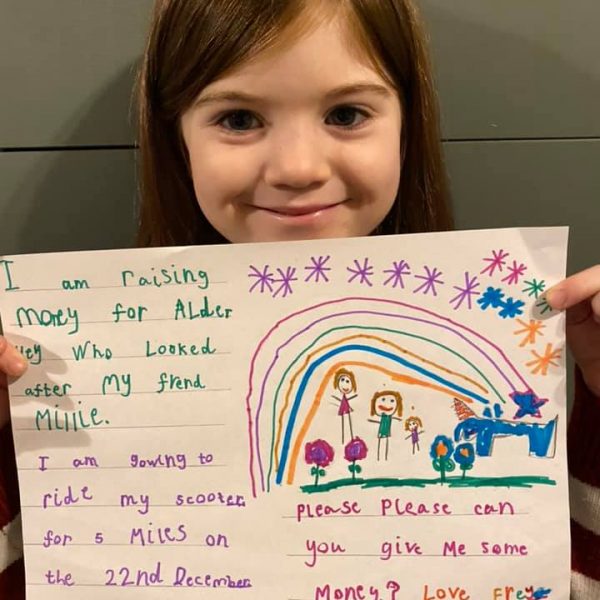 I am raising
money for ALder
Hey Who Looked
after my frend
Millie.
I am gowing to
ride my scooter
for 5 Miles on
the 22nd December
please please can
you give Me some
Money? Love Freya